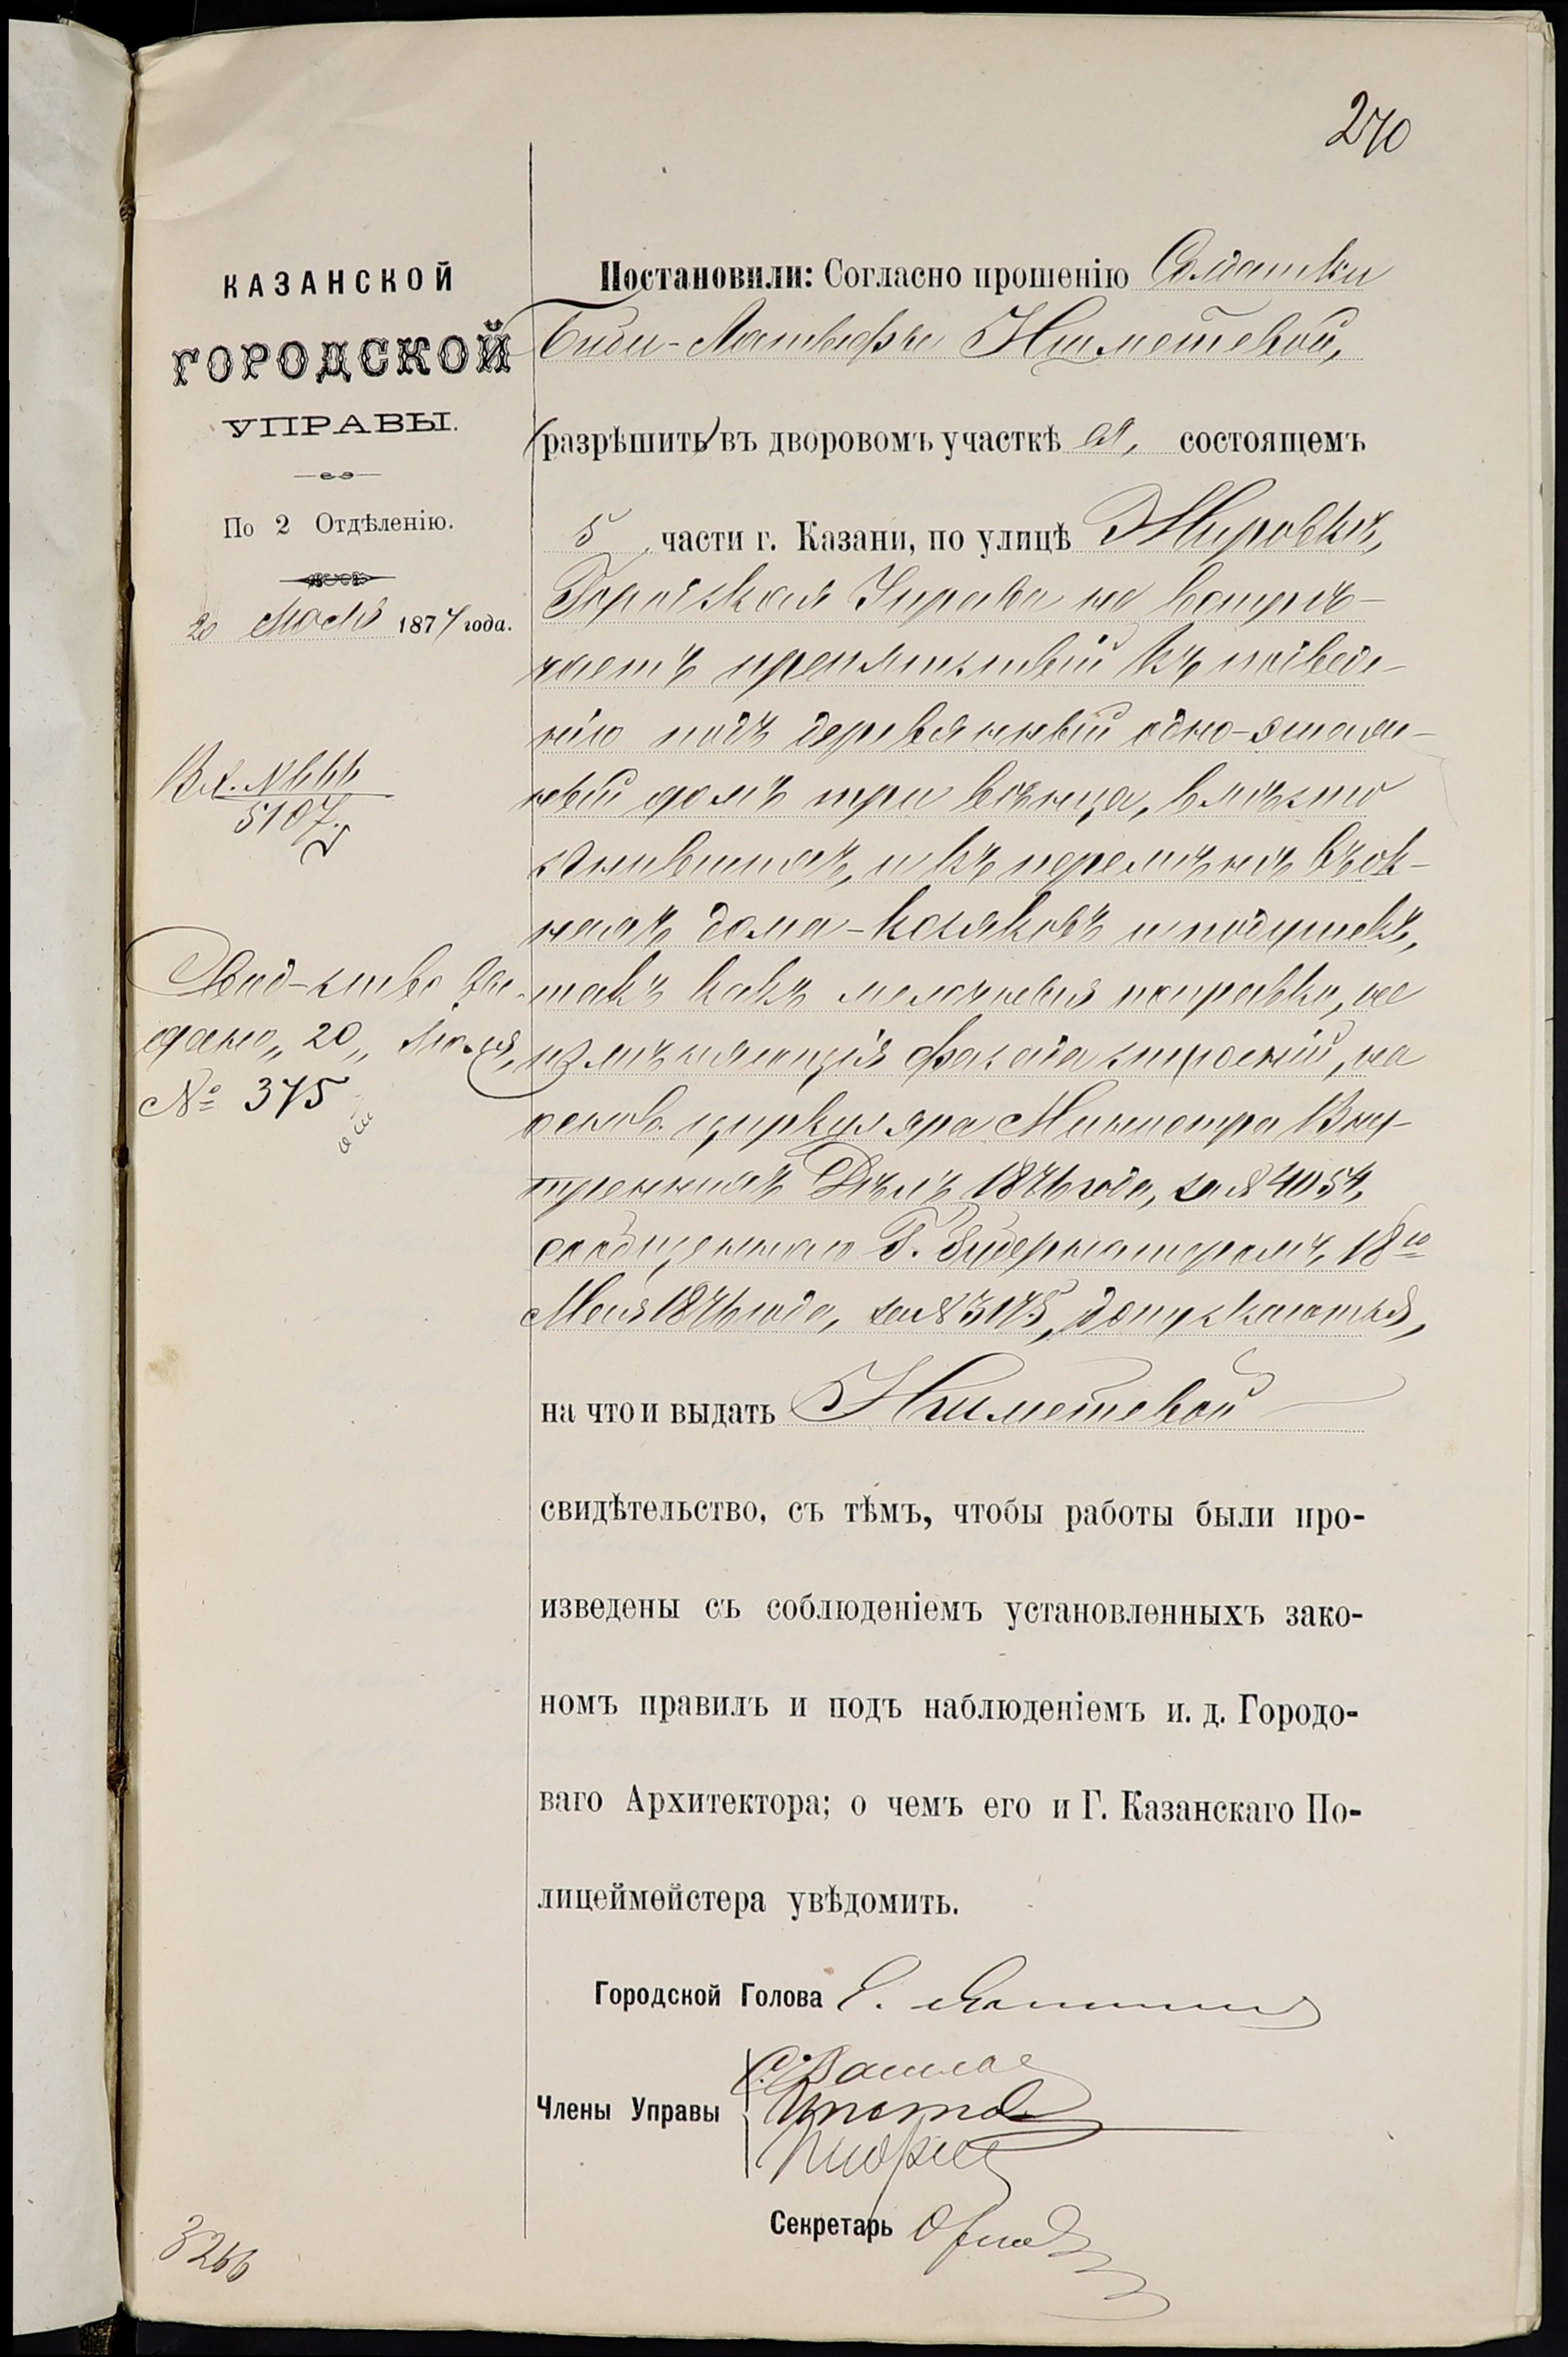 270
КАЗАНСКОЙ
ГОРОДСКОЙ
УПРАВЫ.
По 2 Отдѣленію.
20 1877 года.
Вх. №
5107.
Свид-ство вы-
дано „20„ Іюля,
№ 375
3266
Постановили: Согласно прошенію Солдатки
Биби-Латыфы Нигметевой,
(разрѣшить) въ дворовомъ участкѣ ея, состоящемъ
5 части г. Казани, по улицѣ Жировкѣ,
Городская Управа не встрѣ-
чаетъ препятствій къ подведе-
нію подъ деревянный одно-этаж-
ный домъ три вѣнца, вмѣсто
сгнившихъ, и къ перемѣнѣ въ ок-
нахъ дома-косяковъ и подушекъ,
такъ какъ мелочныя поправки, не
измѣняющія фасада строеній, на
основ. циркуляра Министра Вну-
треннихъ Дѣлъ 1876 года, за № 4054,
сообщеннаго Г. Губернаторомъ, 18го
Мая 1876 года, за № 3175, допускаются,
на что и выдать Нигметевой
свидѣтельство, съ тѣмъ, чтобы работы были про-
изведены съ соблюденіемъ установленныхъ зако-
номъ правилъ и подъ наблюденіемъ и. д. Городо-
ваго Архитектора; о чемъ его и Г. Казанскаго По-
лицеймейстера увѣдомить.
Городской Голова
Члены Управы
Секретарь